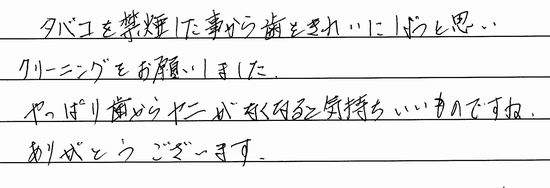 タバコを禁煙した事から歯をきれいにしようと思い
クリーニングをお願いしました。
やっぱり歯からヤニがなくなると気持ちいいものですね。
ありがとうございます。